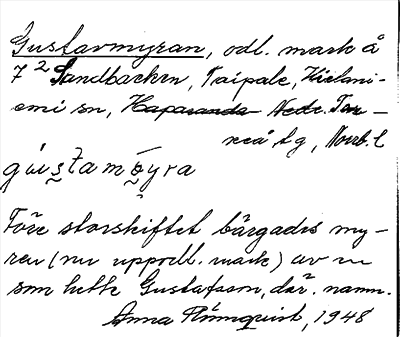 Gustavmyran, odl. mark å
7² Sandbacken, Taipale, Hietani-
emi sn, Haparanda Nedr. Tor-
neå tg, Norrb. l
gùs̮tamö̮yra
Före storskiftet bärgades my-
ren (nu uppodl. mark) av en
som hette Gustafsson, där. namn.
Anna Rönnquist, 1948